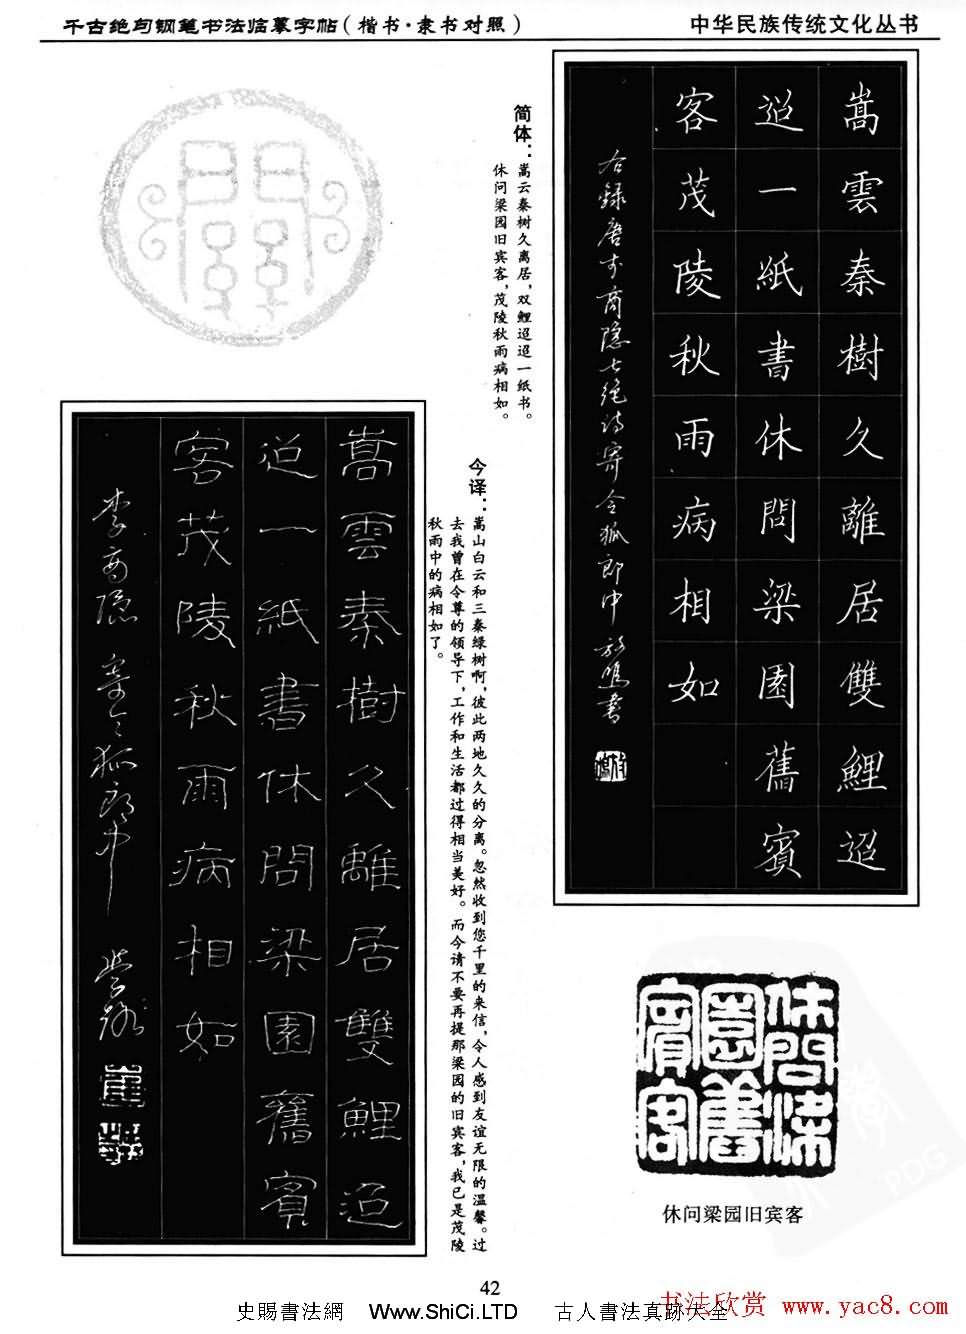 千古绝句钢笔书法临摹字帖(楷书·隶书对照)
中华民族传统文化丛书
嵩雲秦樹久離居雙鯉迢
迢一紙書休問梁園舊賓
客茂陵秋雨病相如
简体:
嵩云秦树久离居,双鲤迢迢一纸书。
休问梁园旧宾客,茂陵秋雨病相如。
今译:
嵩山白云和三秦绿树啊,彼此两地久久的分离。忽然收到您千里的来信,令人感到友谊无限的温馨。过
去我曾在令尊的领导下,工作和生活都过得相当美好。而今请不要再提那梁园的旧宾客,我已是茂陵
秋雨中的病相如了。
嵩雲秦樹久離居雙鯉迢
迢一紙書休問梁園舊賓
客茂陵秋雨病相如
李商隐 寄令狐郎中
休問梁園舊賓客
休问梁园旧宾客
42
史賜書法網 Www.ShiCi.LTD 古人書法真跡大全
书法欣赏 www.yac8.com